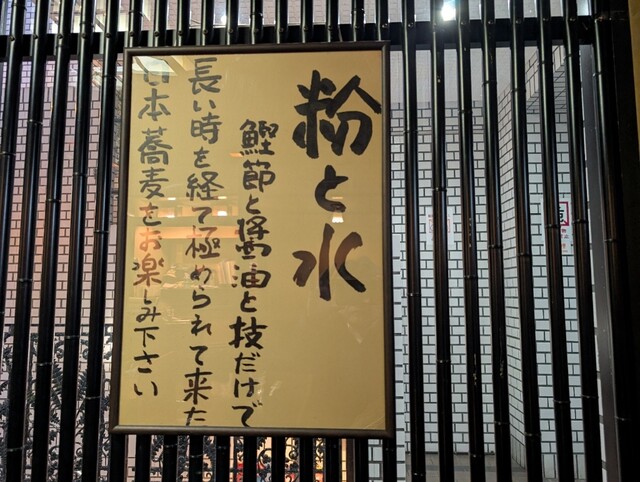 粉と水
鰹節と醤油と技だけで
長い時を経て極められて来た
日本蕎麦をお楽しみ下さい